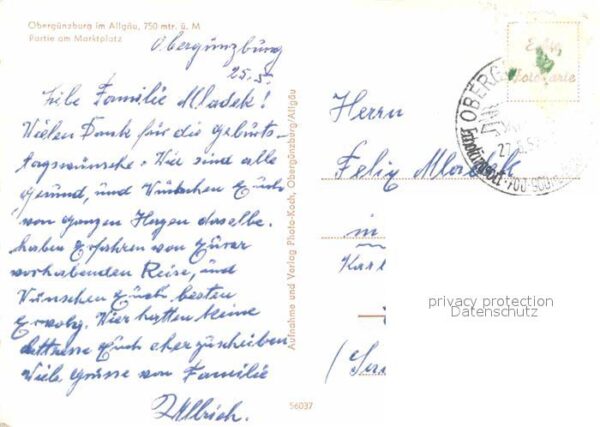 Obergünzburg im Allgäu, 750 mtr. ü. M
Partie am Marktplatz
Obergünzburg
25.5.
Liebe Familie Mladek!
Vielen Dank für die Geburts-
tagswünsche. Wir sind alle
gesund, und Wünschen Euch
von ganzen Herzen dasselbe.
haben Erfahren von Eurer
vorhabenden Reise, und
Wünschen Euch besten
Erfolg. Wir hatten keine
Euch eher zuschreiben
Viele Grüsse von Familie
Ullrich.
Aufnahme und Verlag Photo-Koch, Obergünzburg/Allgäu
56037
Echte
Fotokarte
OBERG
700-900
Herrn
Felix Mladek
in
Kar
privacy protection
Datenschutz